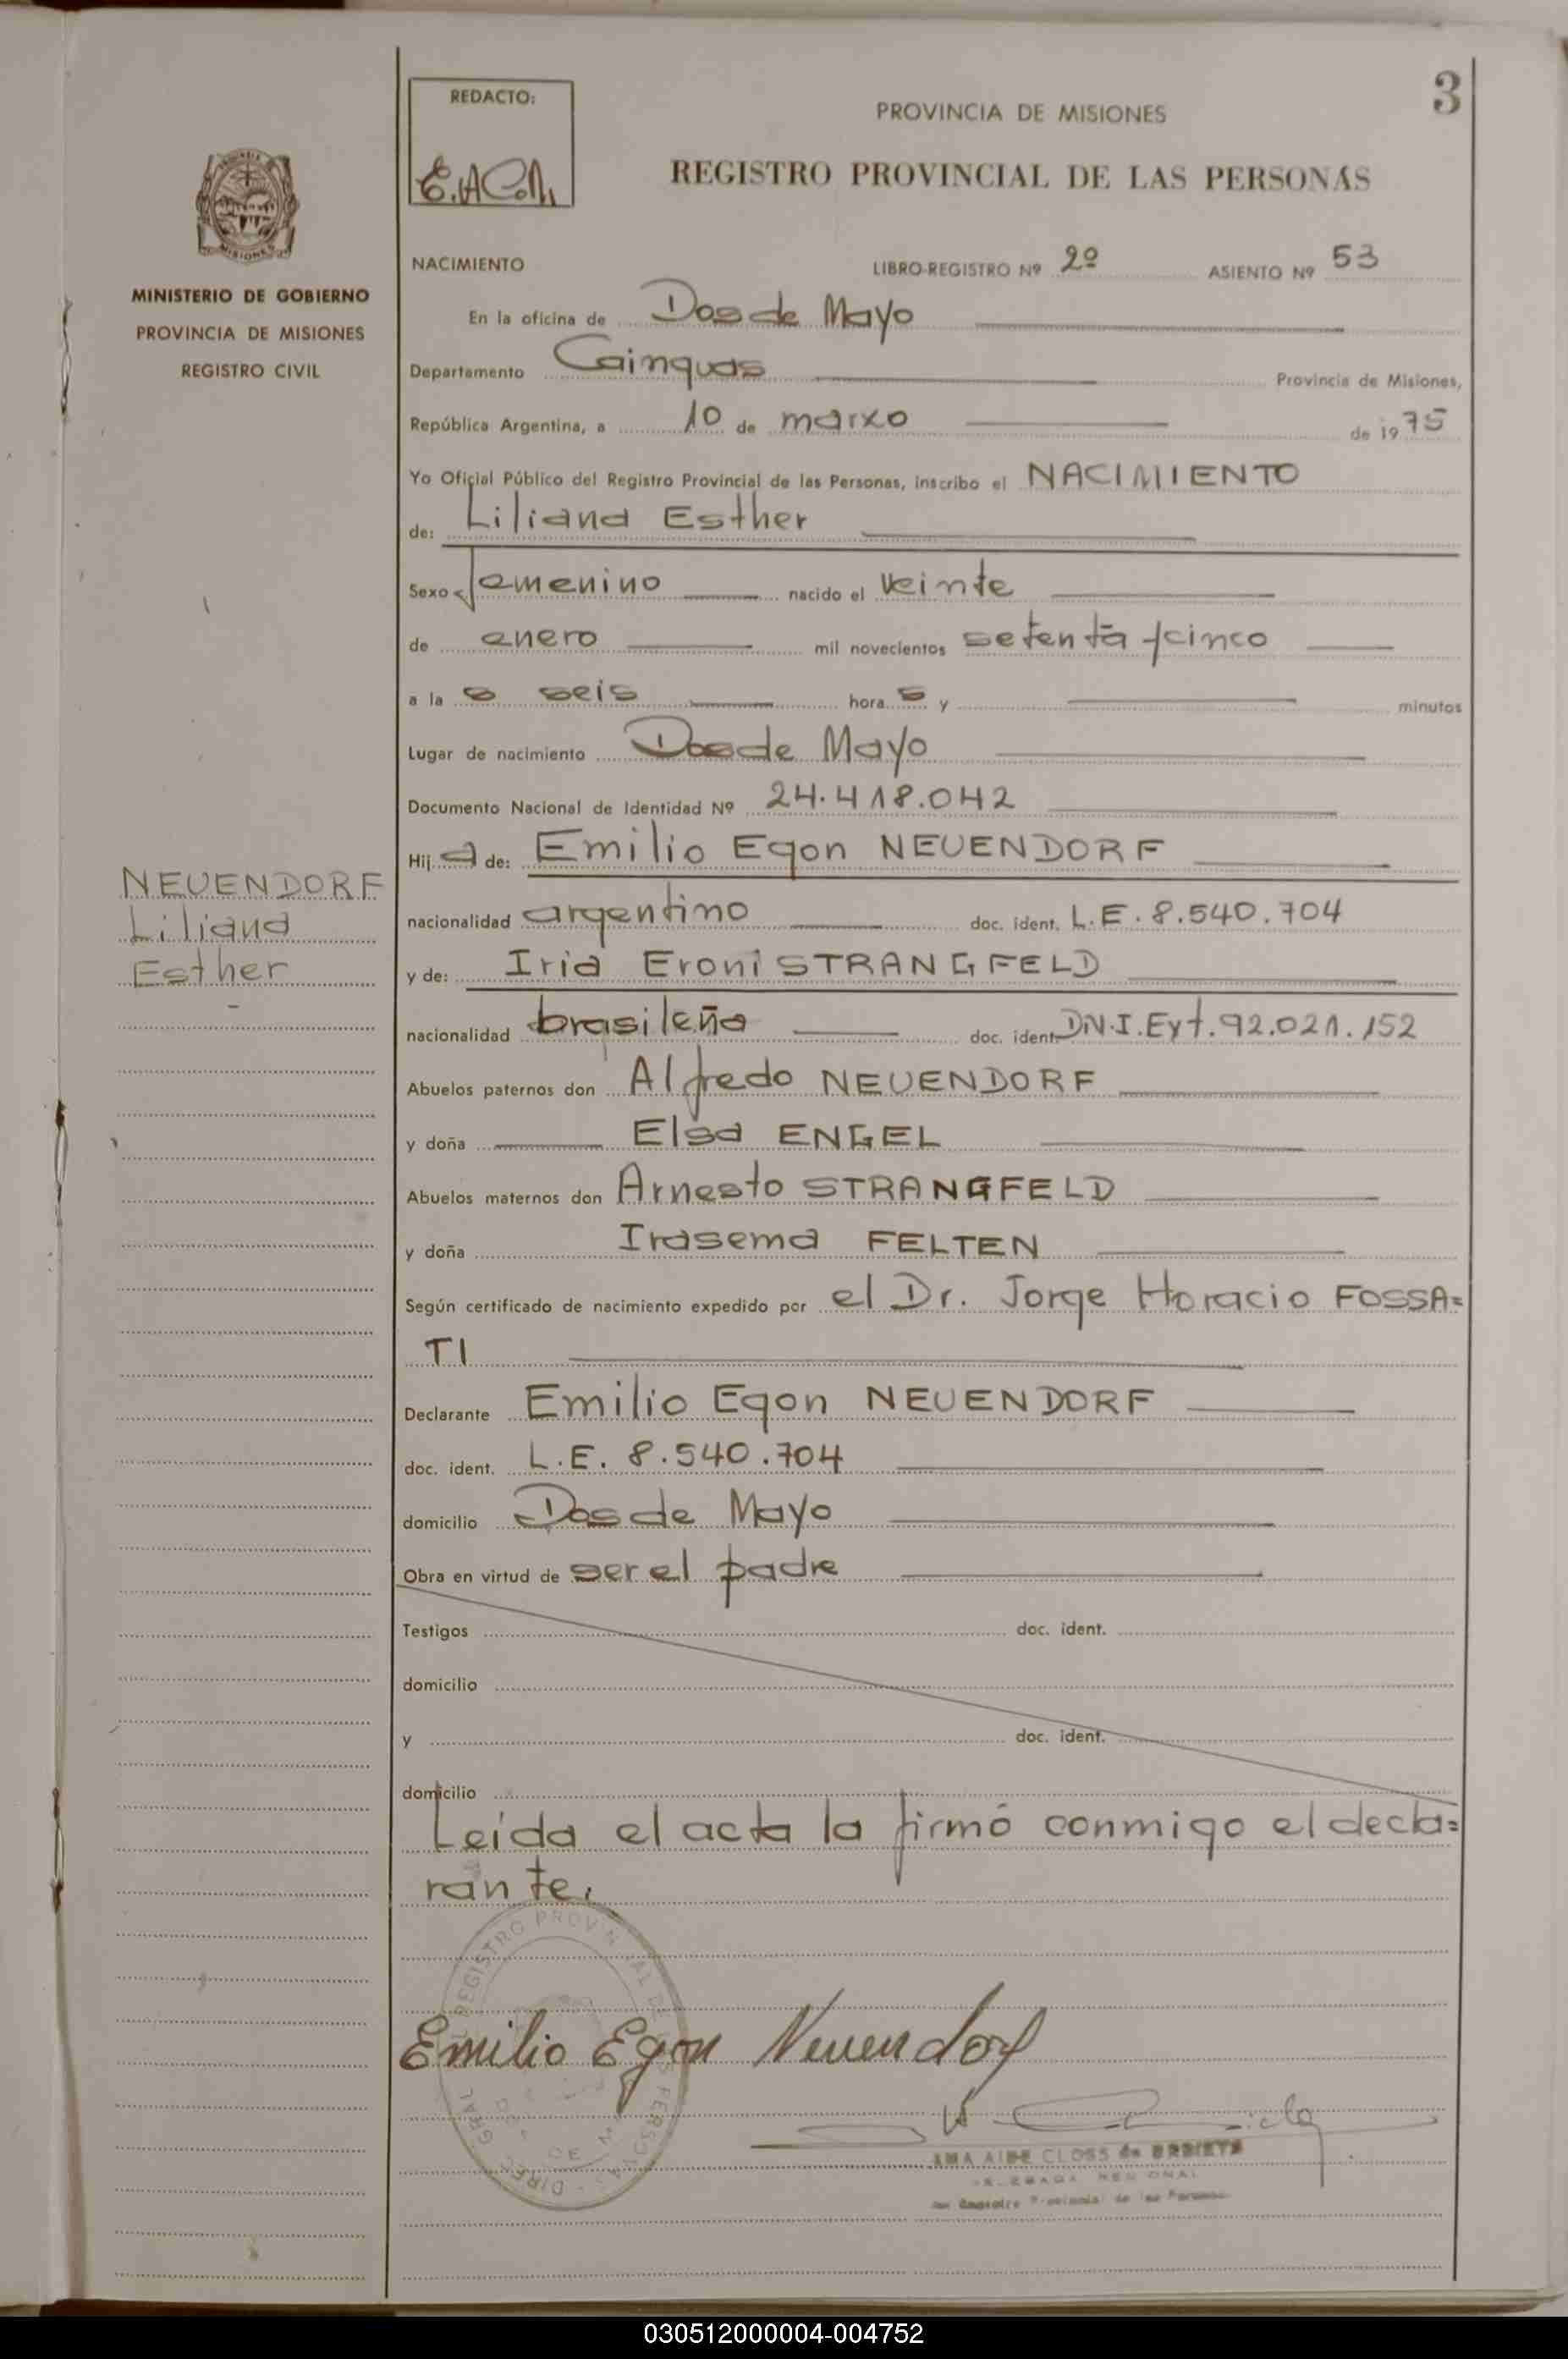 3
REDACTO:
PROVINCIA DE MISIONES
REGISTRO PROVINCIAL DE LAS PERSONAS
MISIONES
MINISTERIO DE GOBIERNO
PROVINCIA DE MISIONES
REGISTRO CIVIL
NACIMIENTO LIBRO-REGISTRO Nº 2º ASIENTO Nº 53
En la oficina de Dos de Mayo
Departamento Cainguas Provincia de Misiones,
República Argentina, a 10 de marzo de 1975
Yo Oficial Público del Registro Provincial de las Personas, inscribo el NACIMIENTO
de: Liliana Esther
Sexo femenino nacido el veinte
de enero mil novecientos setenta y cinco
a la s seis hora s y minutos
Lugar de nacimiento Dos de Mayo
Documento Nacional de Identidad Nº 24.418.042
Hij a de: Emilio Egon NEUENDORF
NEUENDORF
Liliana
Esther
nacionalidad argentino doc. ident. L.E. 8.540.704
y de: Iria Eroni STRANGFELD
nacionalidad brasileña doc. ident. DN.I.Ext. 92.021.152
Abuelos paternos don Alfredo NEUENDORF
y doña Elsa ENGEL
Abuelos maternos don Arnesto STRANGFELD
y doña Irasema FELTEN
Según certificado de nacimiento expedido por el Dr. Jorge Horacio FOSSA=
TI
Declarante Emilio Egon NEUENDORF
doc. ident. L.E. 8.540.704
domicilio Dos de Mayo
Obra en virtud de ser el padre
Testigos doc. ident.
domicilio
y doc. ident.
domicilio
Leída el acta la firmó conmigo el decla=
rante.
Emilio Egon Neuendorf
030512000004-004752